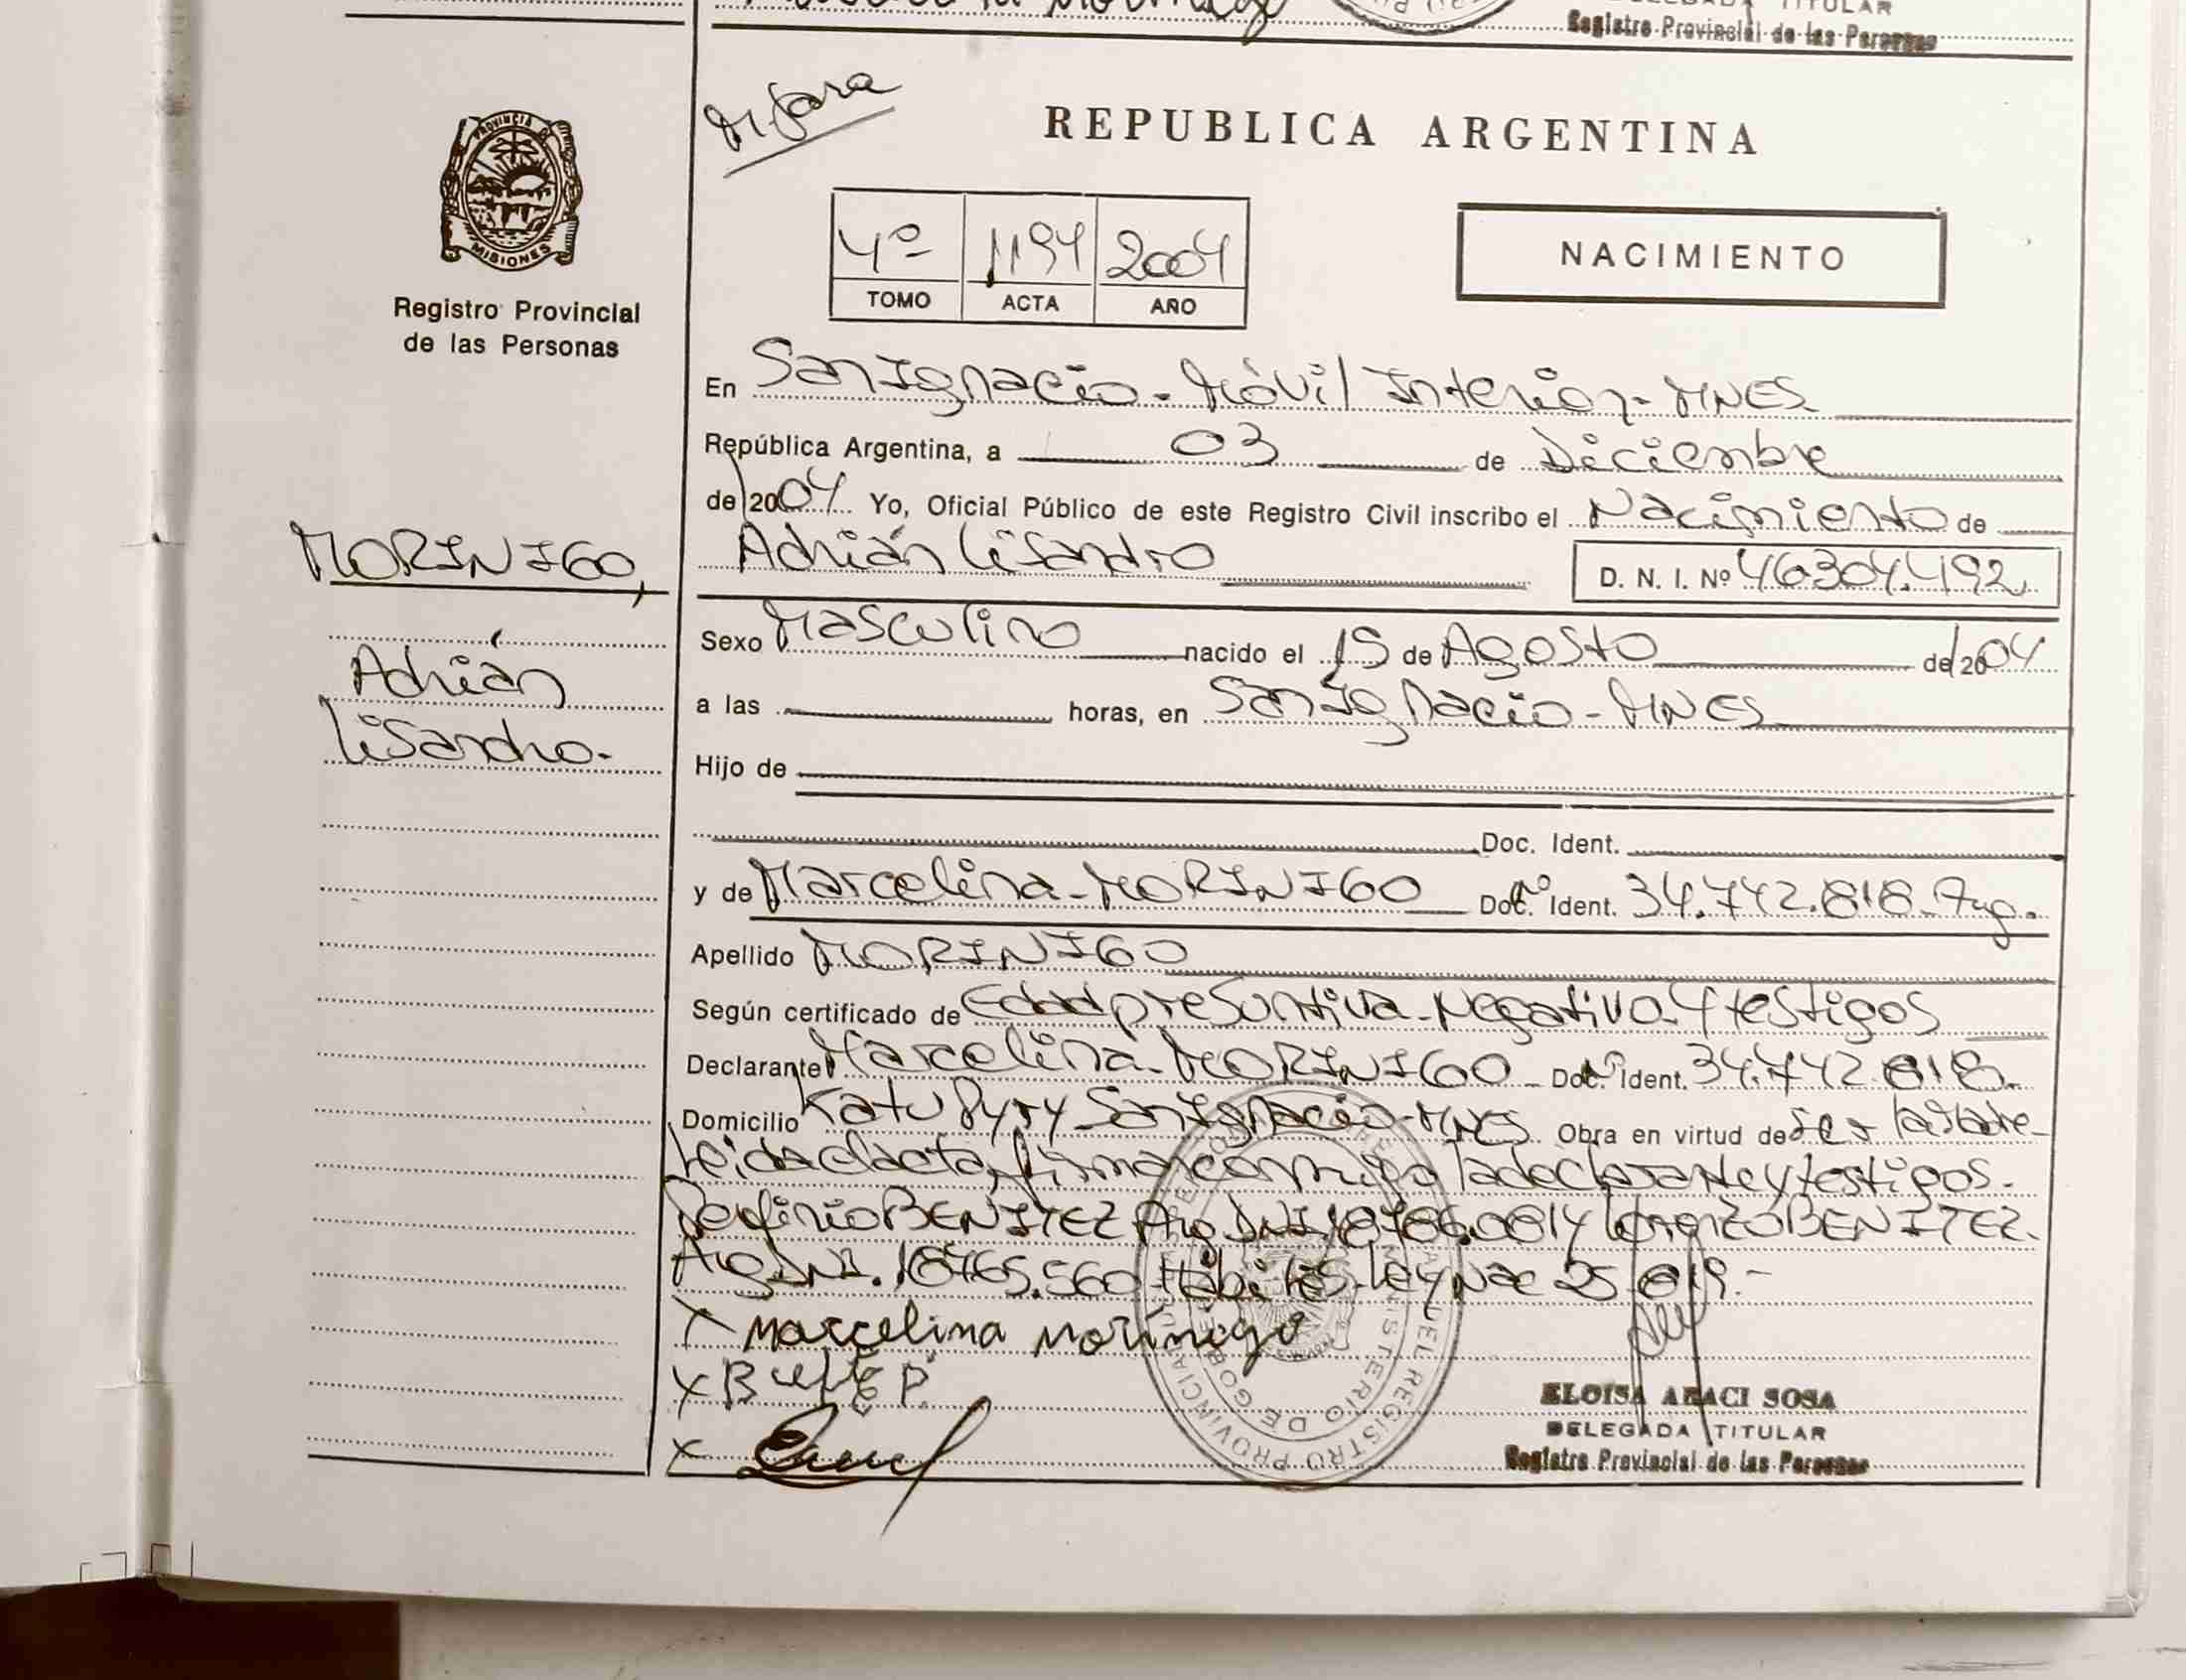 TITULAR
Registro Provincial de las Personas
REPUBLICA ARGENTINA
PROVINCIA DE
MISIONES
Registro Provincial
de las Personas
4º 1194 2004
TOMO ACTA AÑO
NACIMIENTO
En San Ignacio - Móvil Interior - MNES
República Argentina, a 03 de Diciembre
de 2004 Yo, Oficial Público de este Registro Civil inscribo el Nacimiento de
Adrián Lisandro D. N. I. Nº 46.304.492
MORINIGO,
Adrián
Lisandro.
Sexo Masculino nacido el 15 de Agosto de 2004
a las horas, en San Ignacio - MNES
Hijo de
Doc. Ident.
y de Marcelina - MORINIGO Doc. Ident. 34.742.818 - Arg.
Apellido MORINIGO
Según certificado de Edad presuntiva - Negativo - Y testigos
Declarante Marcelina - MORINIGO - Doc. Ident. 34.742.818.
Domicilio Katu Pyry San Ignacio - MNES Obra en virtud de ser la
Leida el acta, firman conmigo la declarante y testigos.
BENITEZ Arg. DNI. Lorenzo BENITEZ.
Arg DNI. 18765.560 Hábiles - Ley Nac 25.819.-
X Marcelina Morinigo
X
X
ELOISA ARACI SOSA
DELEGADA TITULAR
Registro Provincial de las Personas